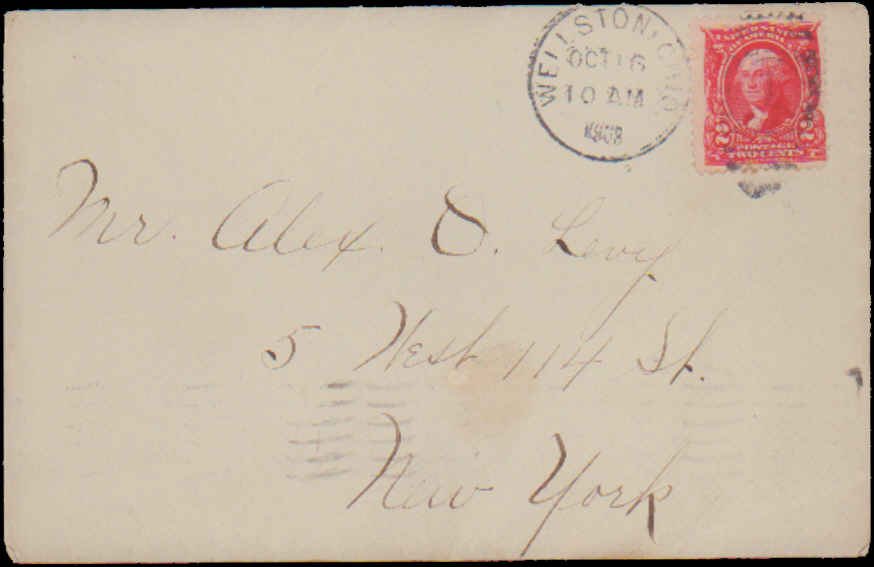 WELLSTON, OHIO
OCT 16
10 AM
1908
UNITED STATES
OF AMERICA
2 2
POSTAGE
TWO CENTS
Mr. Alex. O. Levy
5 West 114 St.
New York